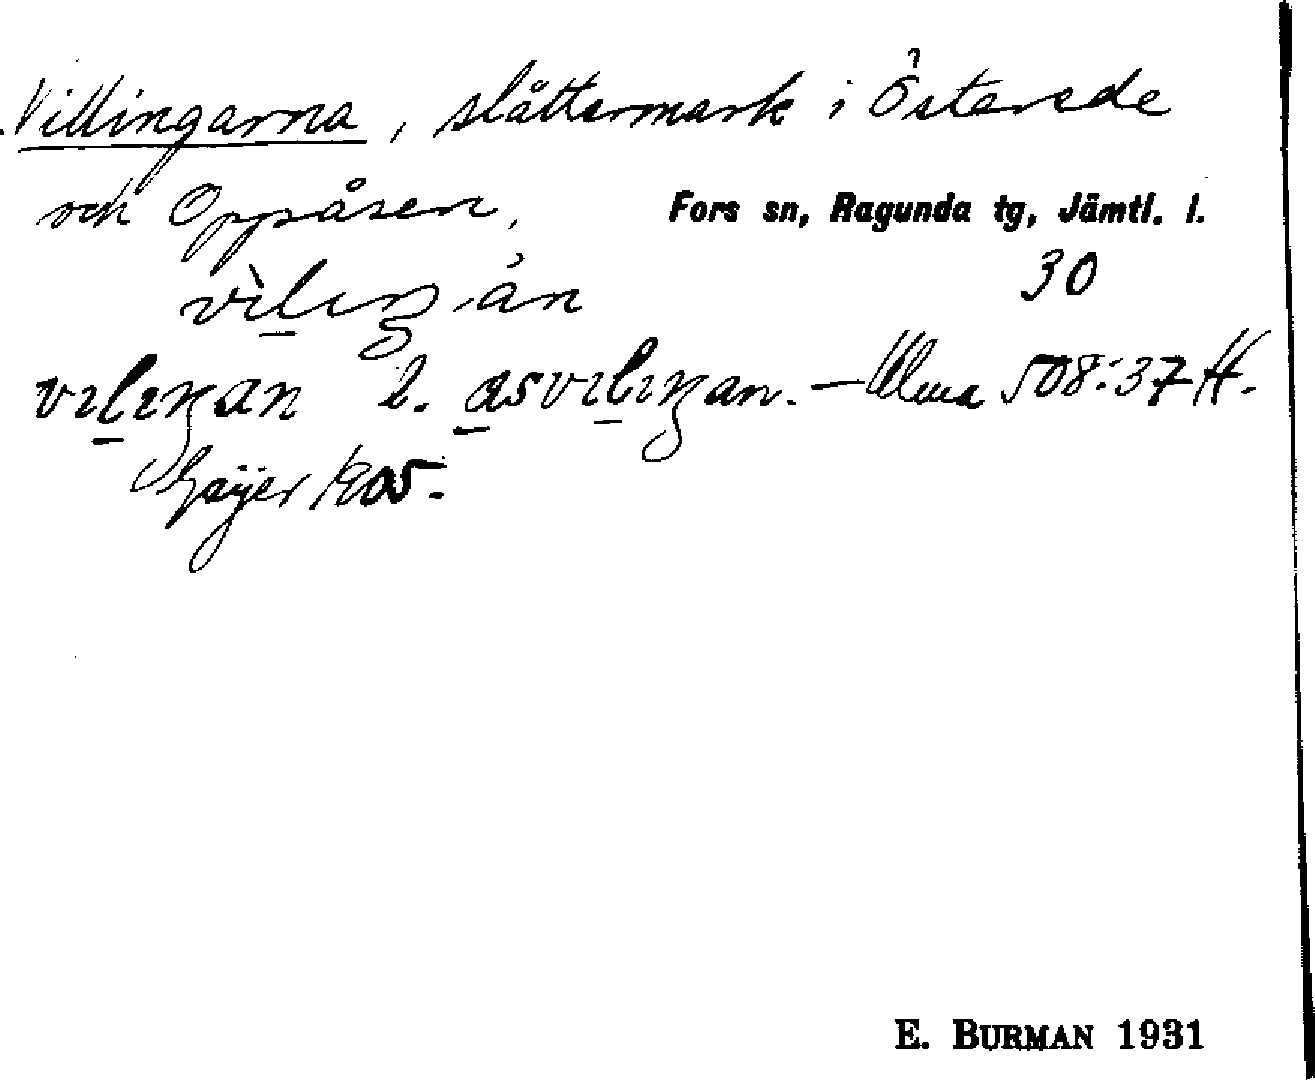 Villingarna, slåttermark i Österede
och Oppåsen, Fors sn, Ragunda tg, Jämtl. l.
30
vìlıŋ án
vılıŋan l. asvılıŋan. — Ulma 508:37 H.
Geijer 1905.
E. BURMAN 1931